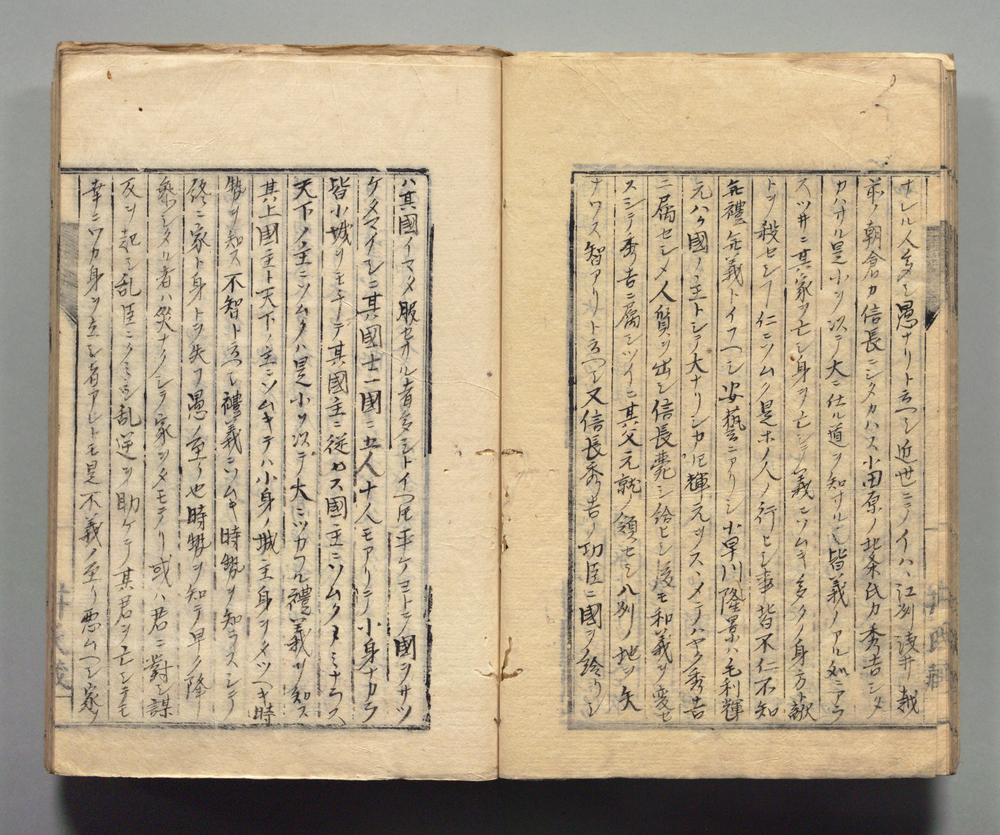 ナレル人多シ愚ナリト云ヘシ近世ニノイハ江州浅井越
前ノ朝倉カ信長ニシタカハス小田原ノ北条氏カ秀吉ニシタ
カハサル是小ヲ以テ大ニ仕ル道ヲ知サル也皆義ノアル処ニアラ
スツ井ニ其家ヲ亡シ身ヲ亡シテ義ニソムキ多クノ身方ト敵
トヲ殺セシフ仁ニソムク是ホノ人ノ行ヒシ事皆不仁不知
無禮無義トイフヘシ安藝ニアリシ小早川隆景ハ毛利輝
元ハ國ノ主トシテ大ナリシカ𪜈輝元ヲスヽメテハヤク秀吉
ニ属セシメ人質ヲ出シ信長薨シ給ヒシ後モ和義ヲ変セ
スシテ秀吉ニ属シツイニ其父元就ノ領セシ八州ノ地ヲ矢
ナハス智アリト云ヘシ又信長秀吉ノ功臣ニ國ヲ給リシ
ハ其國イマタ服セサル者多シトイヘ𪜈平ケヨトテ國ヲサツ
ケタマイシニ其國士一國ニ五人十人モアリテ小身ナカラ
皆小城ヲモチテ其國主ニ従カス國主ニソムクノミナラス
天下ノ主ニソムクハ是小ヲ以テ大ニツカフル禮義ヲ知ス
其上國主ト天下ノ主ニソムキテハ小身ノ城主身ヲタツヘキ時
勢ヲ知ス不智ト云ヘシ禮義ニソムキ時勢ヲ知ラスシテ
終ニ家ト身トヲ失フ愚ノ至リ也時勢ヲ知テ早ク降
参シタル者ハ災ナクシテ家ヲタモテリ或ハ君ニ対シ謀
反ヲ起シ乱臣ニクミシ乱逆ヲ助ケテ其君ヲ亡シテモ
幸ニワカ身ヲ立シ者アレトモ是不義ノ至リ悪ムヘシ家ヲ